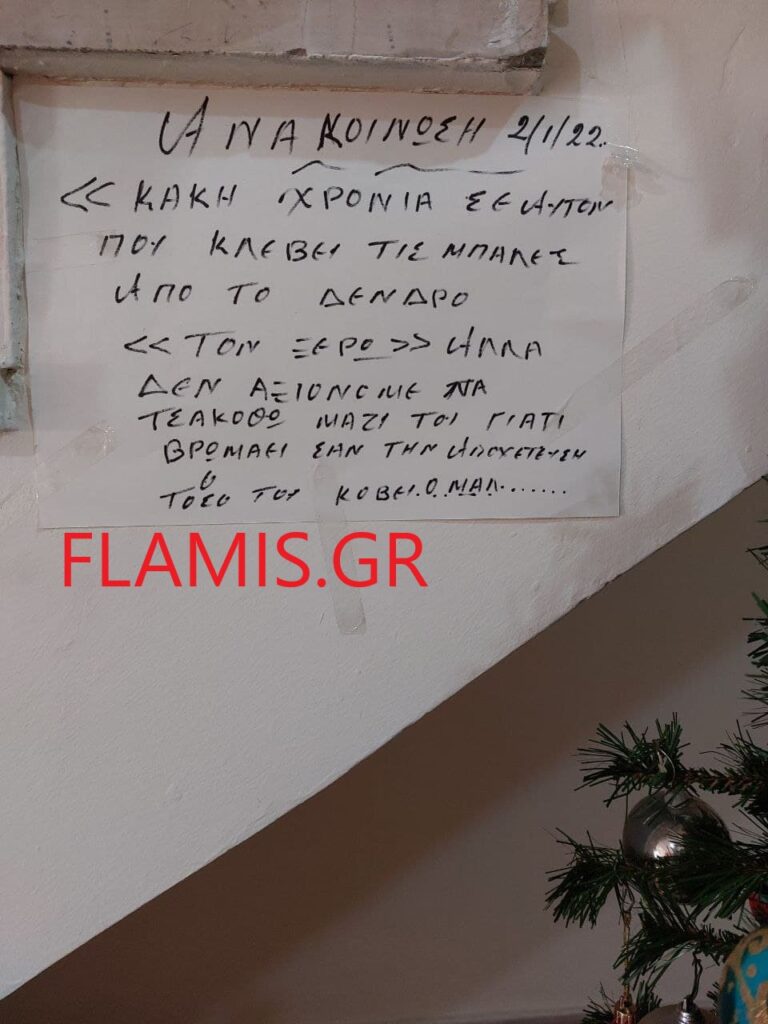 ΑΝΑΚΟΙΝΩΣΗ 2/1/22..
<< ΚΑΚΗ ΧΡΟΝΙΑ ΣΕ ΑΥΤΟΝ
ΠΟΥ ΚΛΕΒΕΙ ΤΙΣ ΜΠΑΛΕΣ
ΑΠΟ ΤΟ ΔΕΝΔΡΟ
<< ΤΟΝ ΞΕΡΩ >> ΑΛΛΑ
ΔΕΝ ΑΞΙΟΝΟΜΕ ΝΑ
ΤΣΑΚΟΘΩ ΜΑΖΙ ΤΟΥ ΓΙΑΤΙ
ΒΡΩΜΑΕΙ ΣΑΝ ΤΗΝ ΑΠΟΧΕΤΕΥΣΗ
ΤΟΣΟ ΤΟΥ ΚΟΒΕΙ.Ο ΜΑΛ.......
FLAMIS.GR